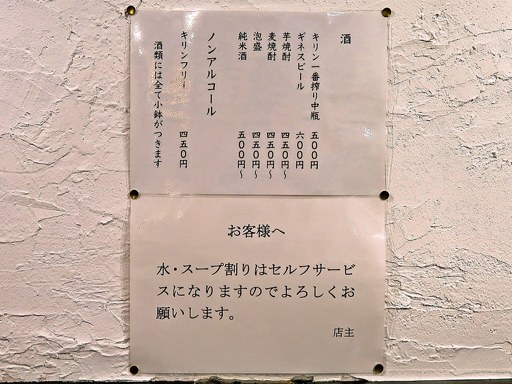 酒
キリン一番搾り中瓶 五〇〇円
ギネスビール 六〇〇円
芋焼酎 四五〇円〜
麦焼酎 四五〇円〜
泡盛 四五〇円〜
純米酒 五〇〇円〜
ノンアルコール
キリンフリー 四五〇円
酒類には全て小鉢がつきます
お客様へ
水・スープ割りはセルフサービ
スになりますのでよろしくお
願いします。
店主